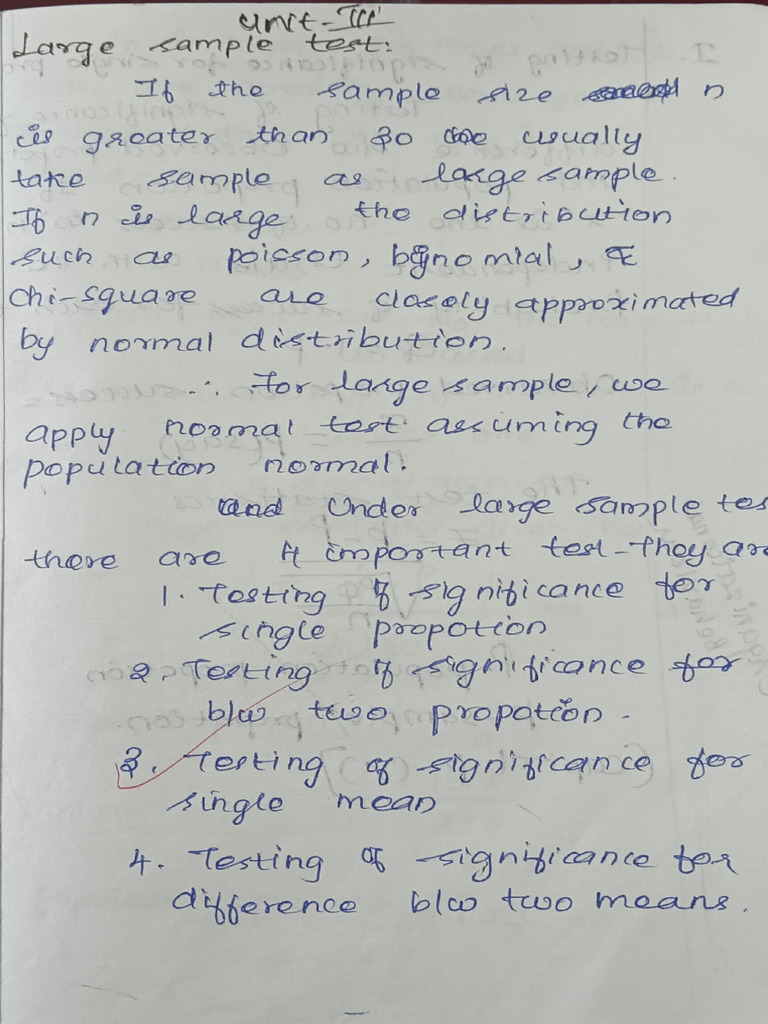 Unit-III
Large sample test:
If the sample size n
is greater than 30 we usually
take sample as large sample.
If n is large the distribution
such as poisson, bionomial, &
Chi-square are closely approximated
by normal distribution.
∴ For large sample, we
apply normal test assuming the
population normal.
and Under large sample tes
there are 4 important test-They are
1. Testing of significance for
single propotion
2. Testing of significance for
b/w two propotion.
3. Testing of significance for
single mean
4. Testing of significance for
difference b/w two means.